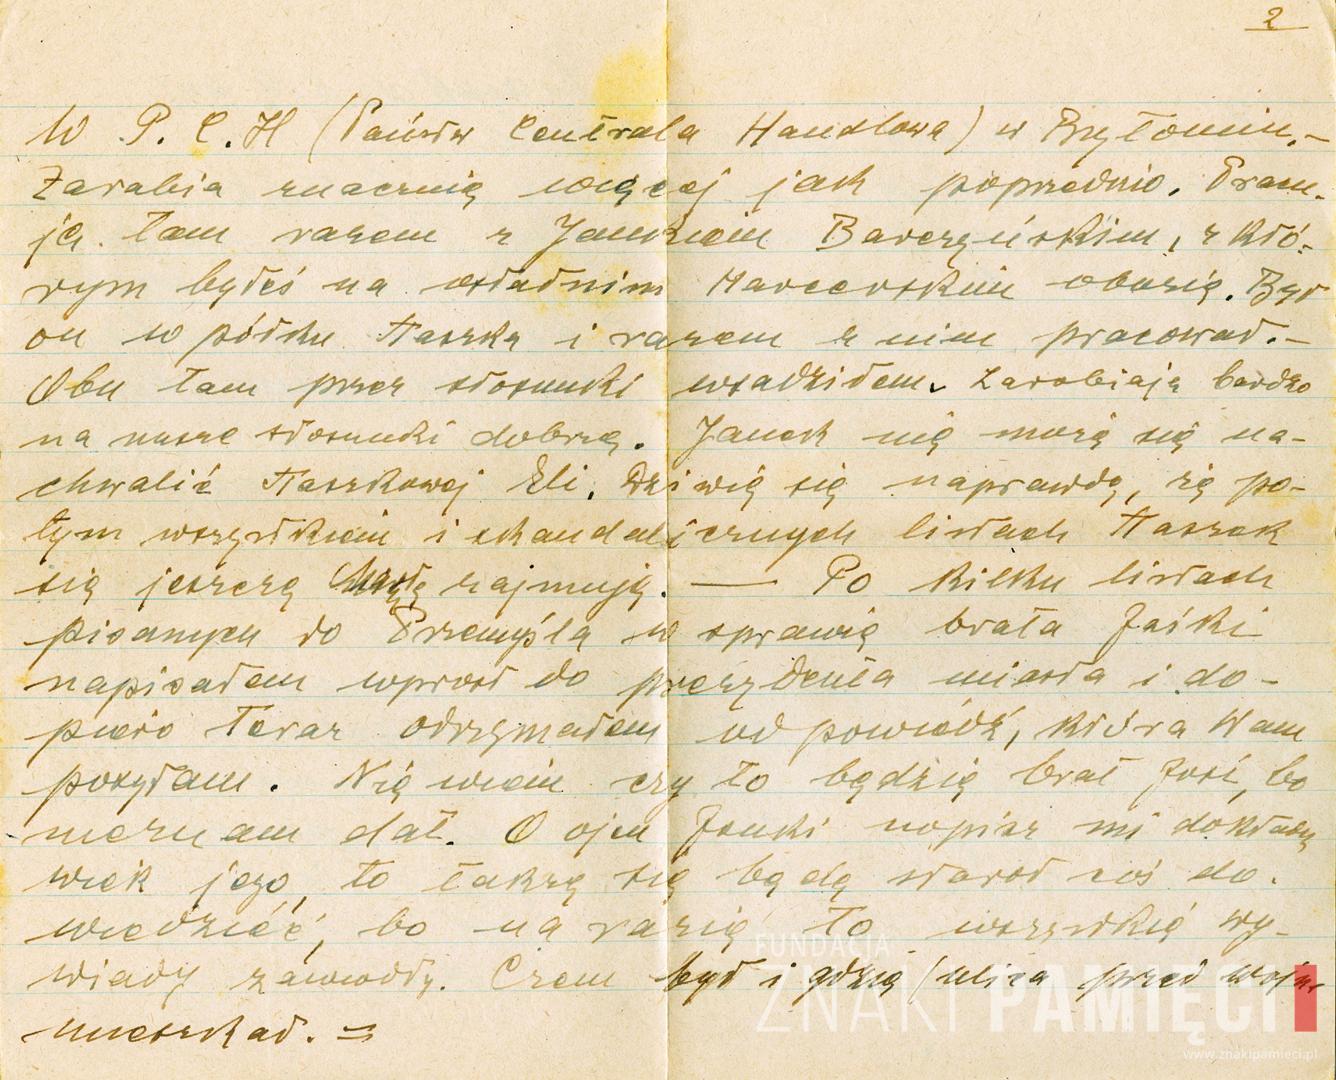 2
W P. C. H (Państw Centrala Handlowa) w Bytomiu.-
Zarabia znacznie więcej jak poprzednio. Pracu-
je tam razem z Jankiem Barczyńskim, z któ-
rym byłeś na ostatnim Harcerskim obozie. Był
on w półku Staszka i razem z nim pracował.-
Obu tam przez stosunki wsadziłem. Zarabiają bardzo
na nasze stosunki dobrze. Janek nie może się na-
chwalić Staszkowej Eli. Dziwię się naprawdę, że po-
tym wszystkiem i skandalicznych listach Staszek
się jeszcze zajmuje. — Po kilku listach
pisanych do Przemyśla w sprawie brata Jaśki
napisałem wprost do prezydenta miasta i do-
piero teraz otrzymałem odpowiedź, która Wam
posyłam. Nie wiem czy to będzie brat Jaśki, bo
nieznam dat. O ojcu Jaśki napisz mi dokładny
wiek jego, to także się będę starał coś do-
wiedzieć, bo na razie to wszystkie wy-
wiady zawiodły. Czem był i gdzie (ulica przed wojną
mieszkał. =
FUNDACJA
ZNAKI PAMIĘCI
www.znakipamieci.pl